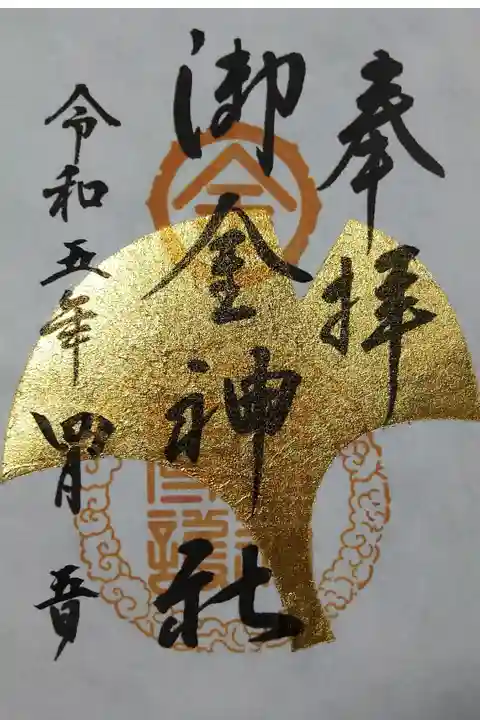 奉拝
御金神社
令和五年四月吉日
金